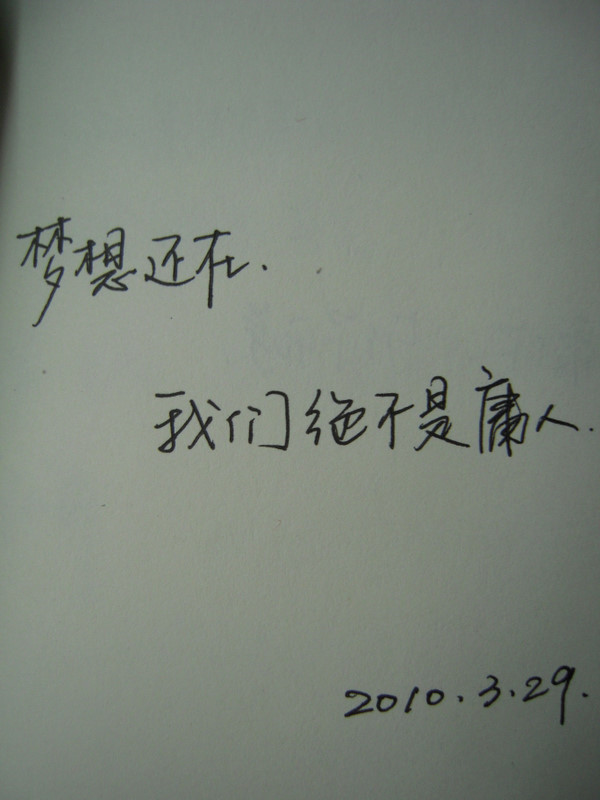 梦想还在.
我们绝不是庸人.
2010.3.29.